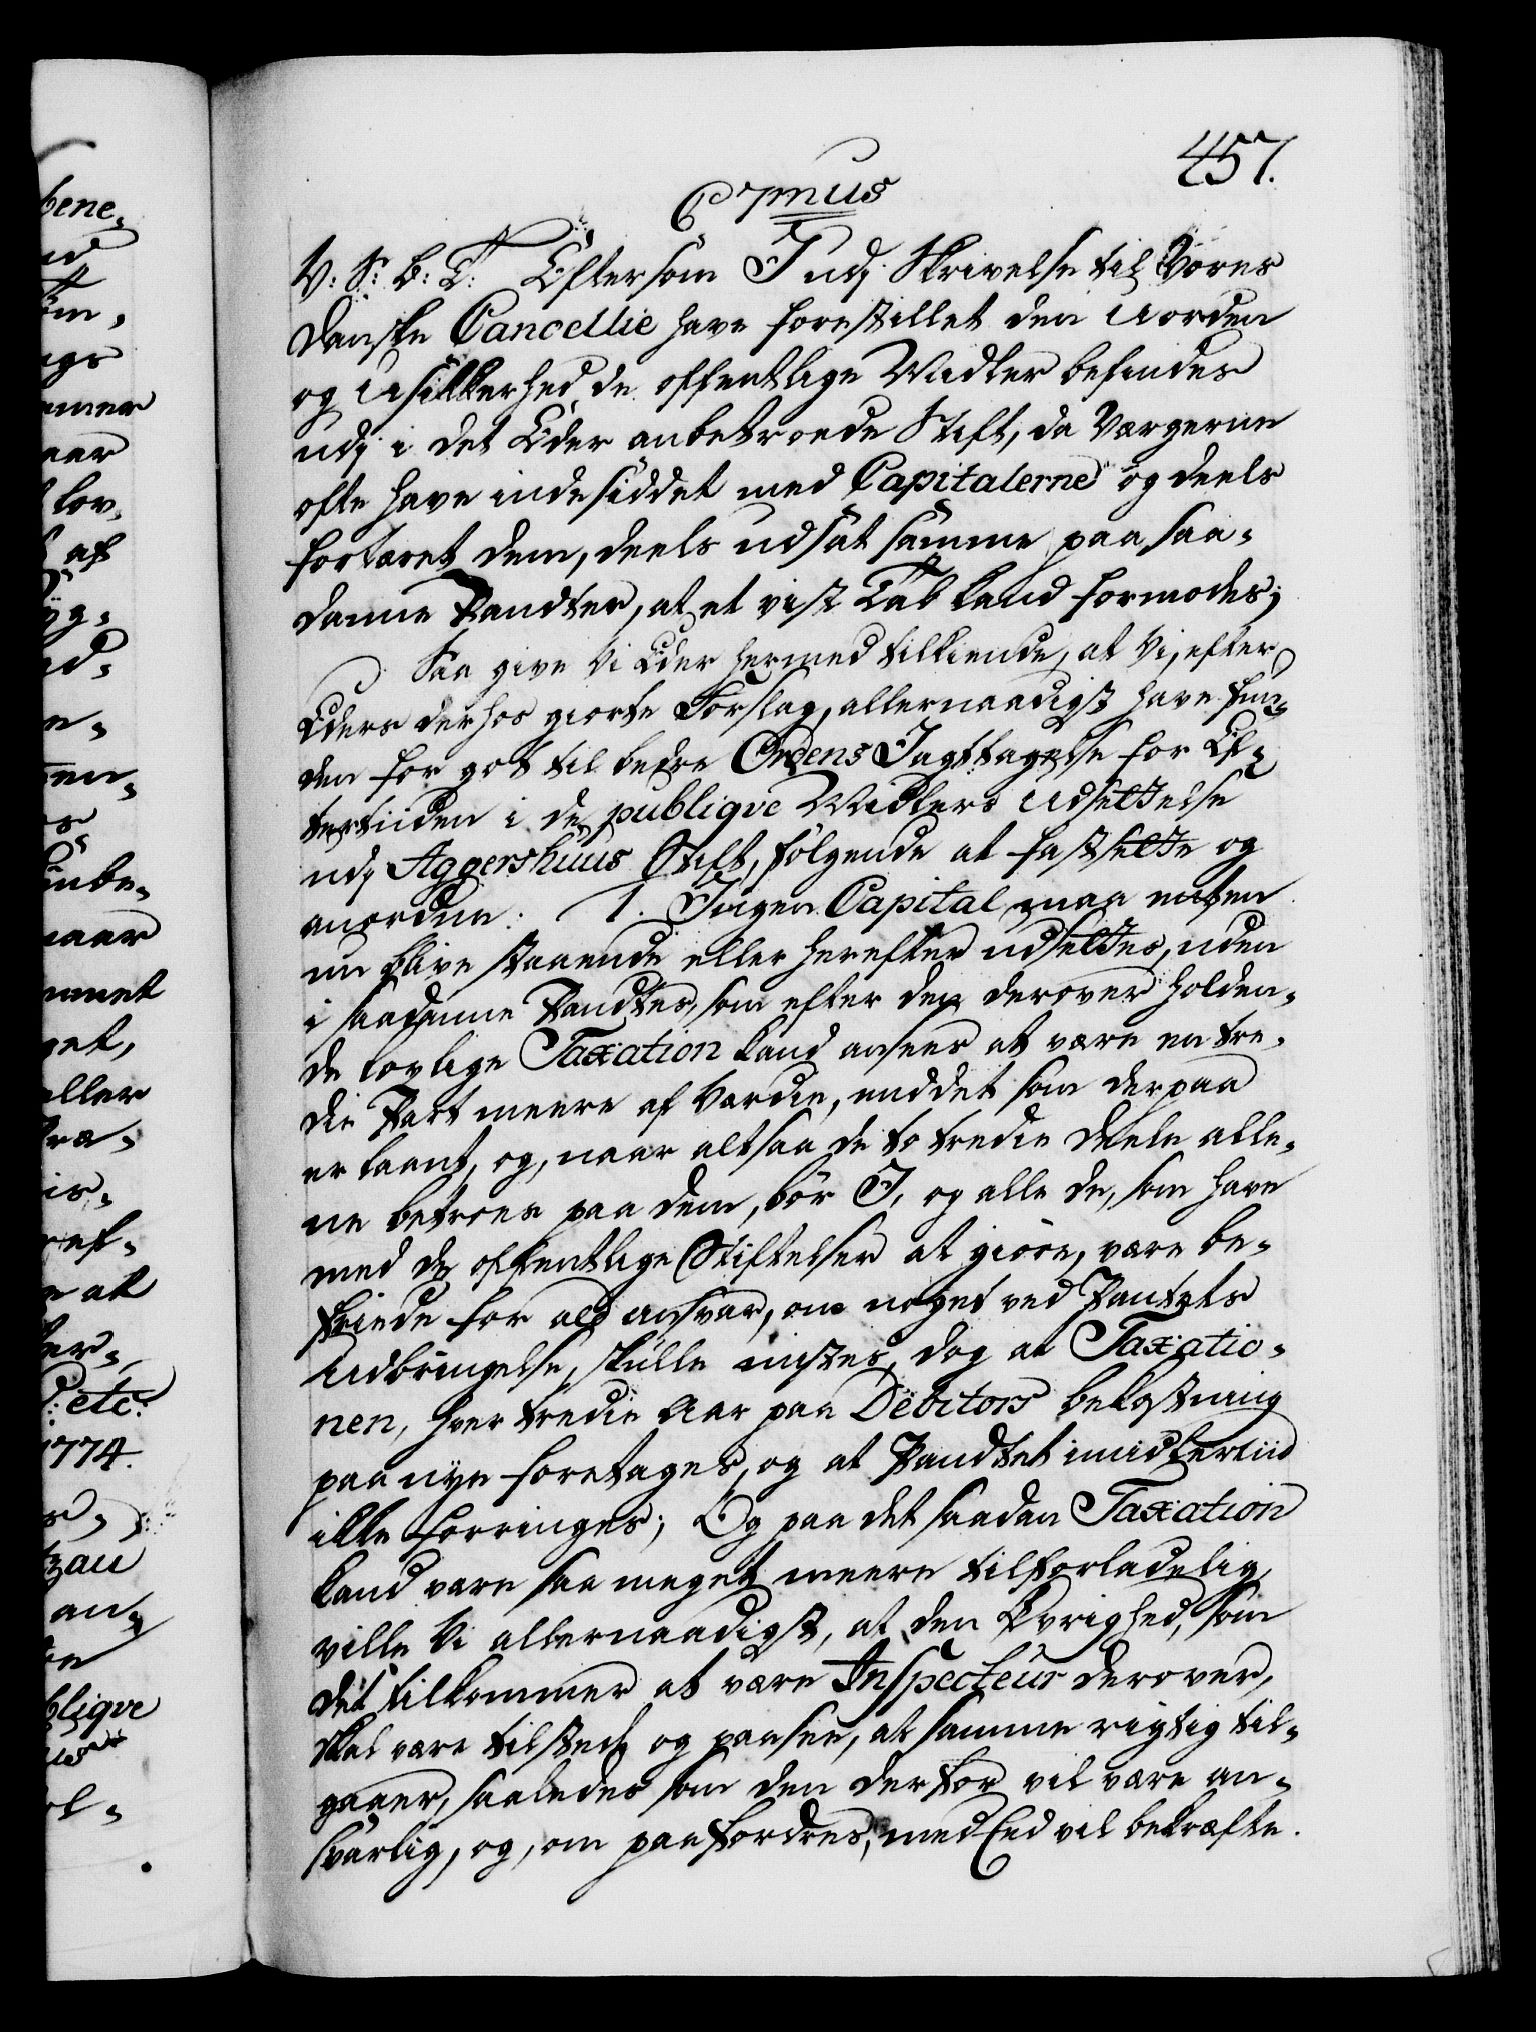 457.
C 7mus
V: S: B: T: Eftersom I udj Skrivelse til Vores
Danske Cancellie have forestillet den Uorden
og Usikkerhed, de offentlige Midler befindes
udj i det Eder anbetroede Stift, da Værgerne
ofte have indesiddet med Capitalerne og deels
fortæret dem, deels udsat samme paa saa-
danne Pandter, at et vist Tab kand formodes;
Saa give Vi Eder hermed tilkiende, at Vi, efter
Eders derhos giorte Forslag, allernaadigst have fun-
den for got til bedre Ordens Iagttagelse for Ef-
tertiiden i de publiqve Midlers Udsættelse
udj Aggershuus Stift, følgende at fastsætte og
anordne: 1. Ingen Capital maa enten
nu blive staaende eller herefter udsættes, uden
i saadanne Pandter, som efter den derover holden-
de lovlige Taxation kand ansees at være en tre-
die Part meere af Værdie, end det som derpaa
er laant, og, naar altsaa de to tredie Deele alle-
ne betroes paa dem, bør I, og alle de, som have
med de offentlige Stiftelser at giøre, være be-
friede for ald Ansvar, om noget ved Pantets
Udbringelse, skulle mistes, dog at Taxatio-
nen, hver tredie Aar paa Debitors bekostning
paa nye foretages, og at Pandtet imidlertiid
ikke forringes; Og paa det saadan Taxation
kand være saa meget meere tilforladelig,
ville Vi allernaadigst, at den Øvrighed, som
det tilkommer at være Inspecteur derover,
skal være tilstæde og paasee, at samme rigtig til-
gaaer, saaledes som den derfor vil være an-
svarlig, og, om paafordres, med Eed vil bekræfte.
bene-
lov-
af
aller
at
etc:
1774.
an-
bliqve